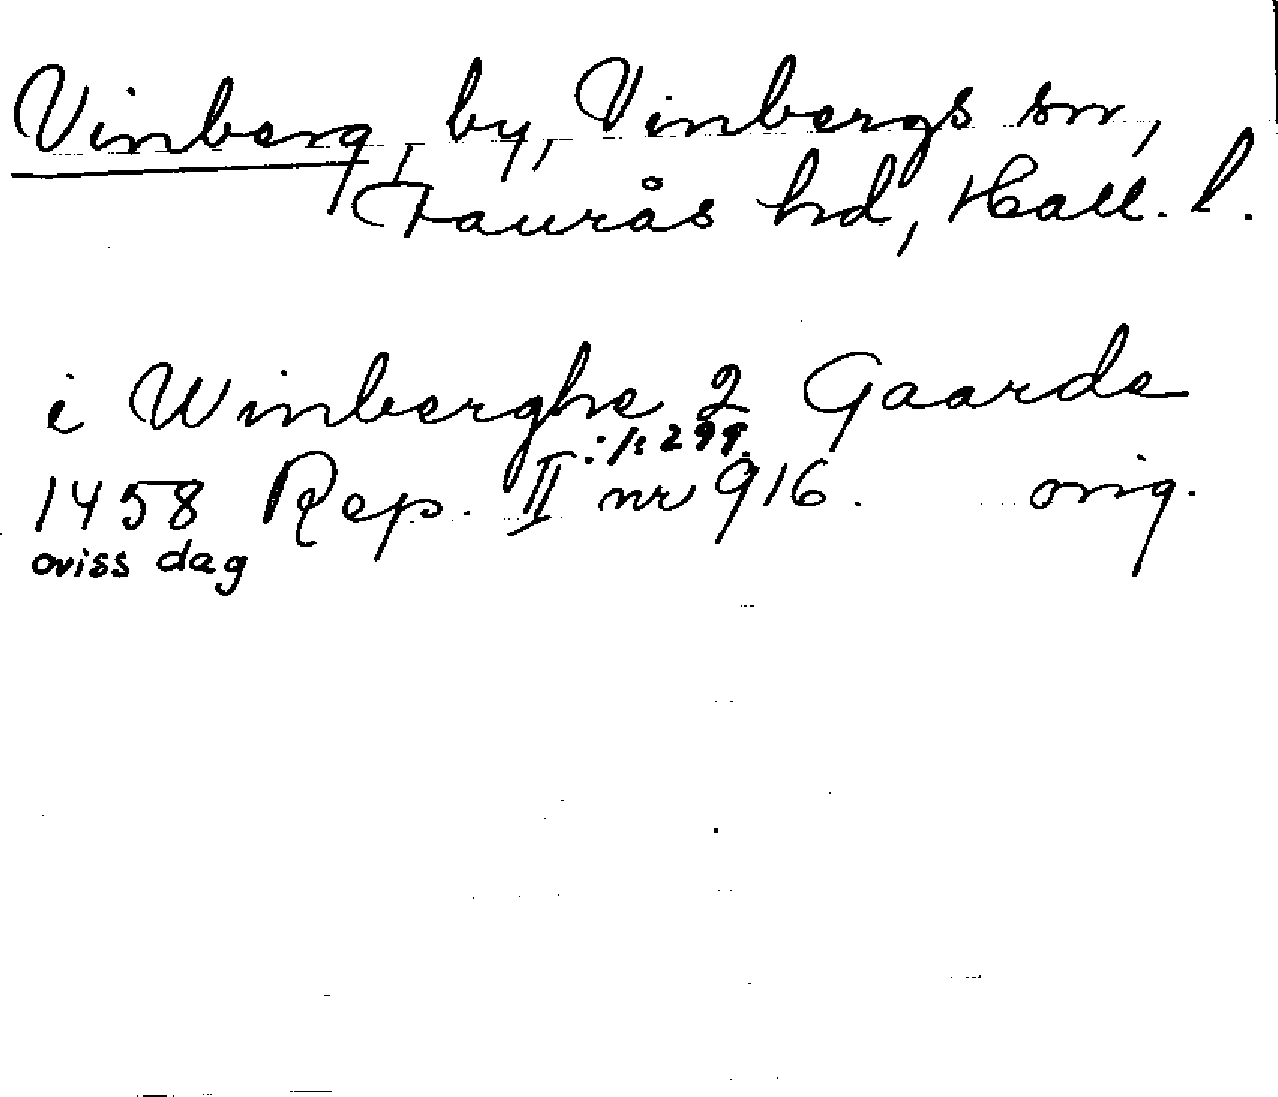 Vinberg, by, Vinbergs sn,
Faurås hd, Hall. l.
i Winberghe 2 Gaarde
:1: 299.
1458 Rep. II nr 916. orig.
oviss dag